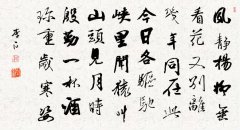 風靜楊柳垂
看花又別離
幾年同在此
今日各驅馳
峽裏聞猿叫
山頭見月時
殷勤一杯酒
珍重歲寒姿